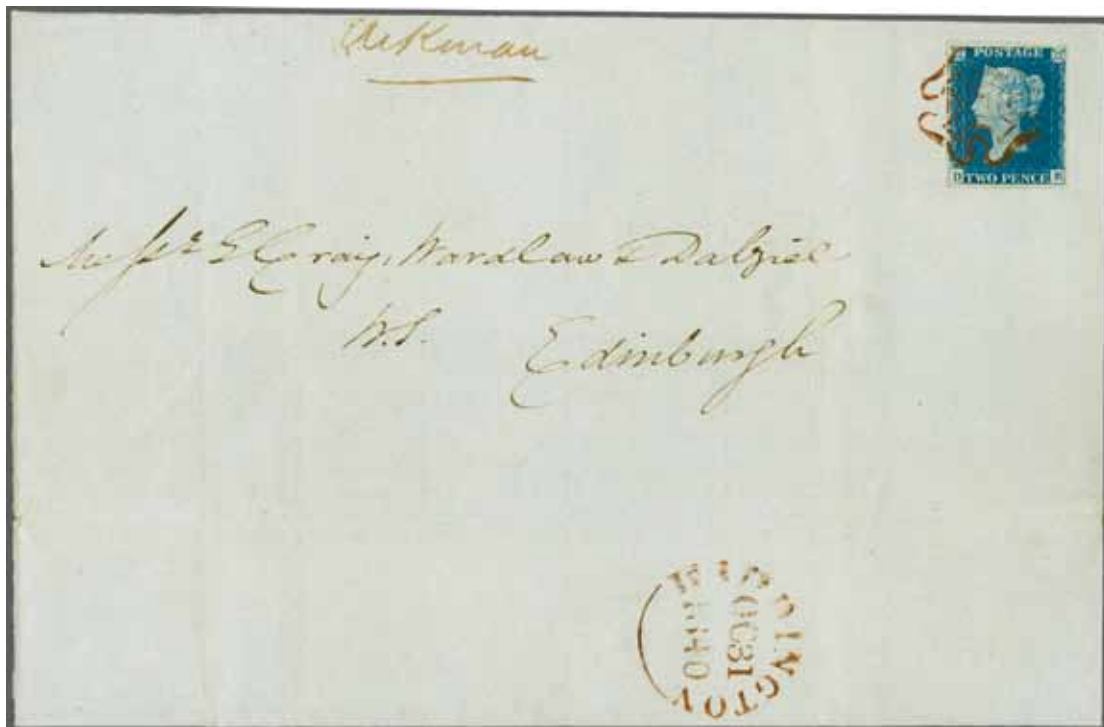 Aikman
POSTAGE
TWO PENCE
Messrs Craig, Wardlaw & Dalziel
W.S. Edinburgh
HADDINGTON
OC 31
1840